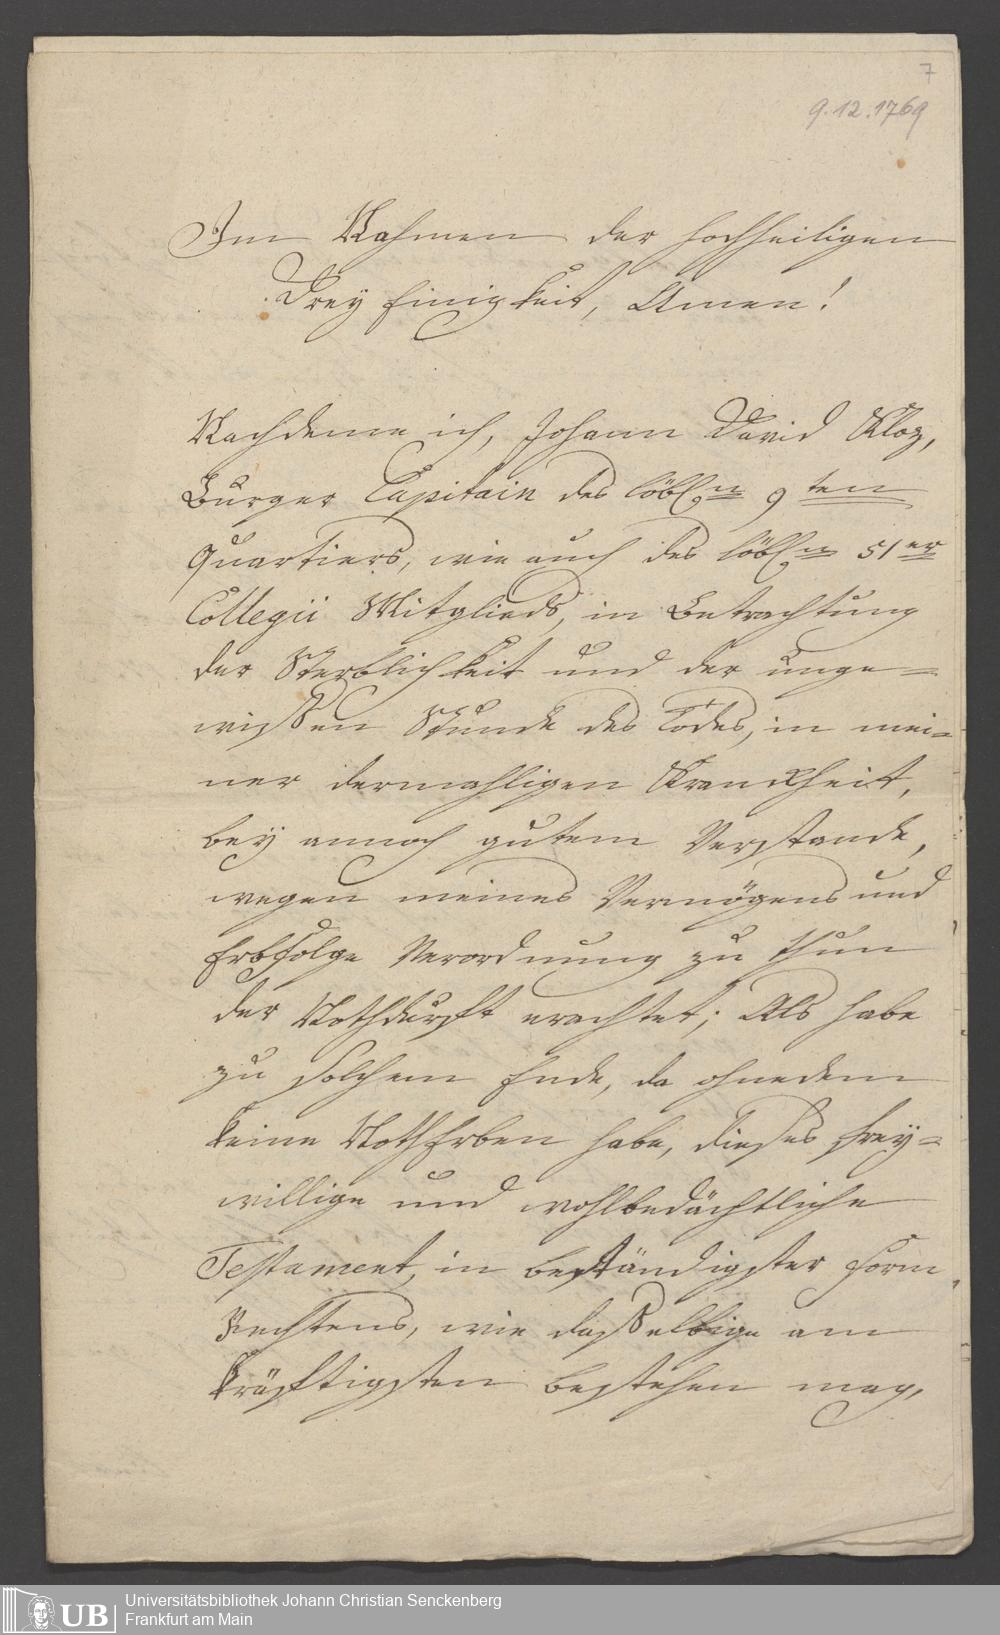 7
9.12.1769
Im Nahmen der hochheiligen
Drey Einigkeit, Amen!
Nachdeme ich, Johann David Kloz,
Burger Capitain des löbl.n 9ten
Quartiers, wie auch des löbl.n 51er
Collegii Mitglieds, in Betrachtung
der Sterblichkeit und der unge=
wißen Stunde des Todes, in mei=
ner dermahligen Kranckheit,
bey annoch gutem Verstande,
wegen meines Vermögens und
Erbfolge Verordnung zu thun
der Nothdurfft erachtet; Als habe
zu solchem Ende, da ohnedem
keine NothErben habe, dieses frey=
willige und wohlbedächtliche
Testament, in beständigster Form
Rechtens, wie daßelbige am
kräfftigsten bestehen mag,
UB
Universitätsbibliothek Johann Christian Senckenberg
Frankfurt am Main